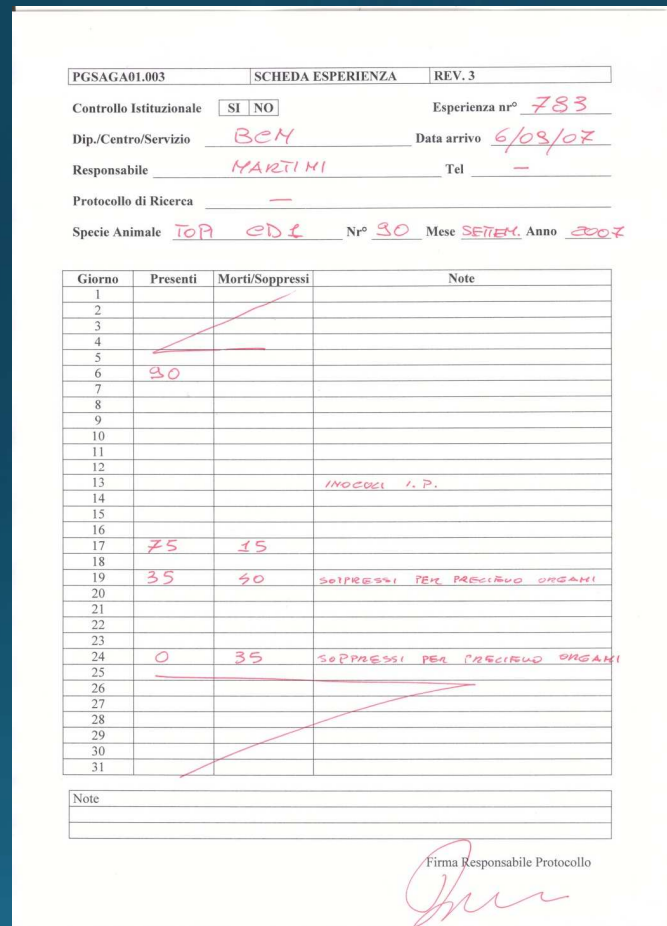 PGSAGA01.003 SCHEDA ESPERIENZA REV. 3
Controllo Istituzionale SI NO Esperienza nr° 783
Dip./Centro/Servizio BCM Data arrivo 6/09/07
Responsabile MARTINI Tel —
Protocollo di Ricerca —
Specie Animale TOPI CD1 Nr° 90 Mese SETTEM. Anno 2007
Giorno Presenti Morti/Soppressi Note
1
2
3
4
5
6 90
7
8
9
10
11
12
13 INOCULI I.P.
14
15
16
17 75 15
18
19 35 40 SOPPRESSI PER PRELIEVO ORGANI
20
21
22
23
24 0 35 SOPPRESSI PER PRELIEVO ORGANI
25
26
27
28
29
30
31
Note
Firma Responsabile Protocollo